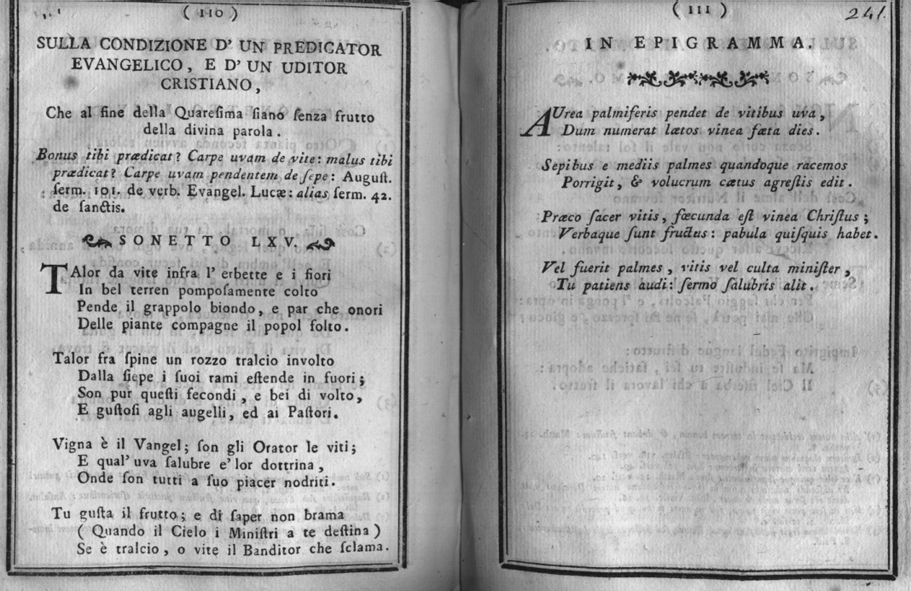 ( 110 )
SULLA CONDIZIONE D' UN PREDICATOR
EVANGELICO, E D' UN UDITOR
CRISTIANO,
Che al fine della Quareſima ſiano ſenza frutto
della divina parola.
Bonus tibi prædicat? Carpe uvam de vite: malus tibi
prædicat? Carpe uvam pendentem de ſepe: Auguſt.
ſerm. 101. de verb. Evangel. Lucæ: alias ſerm. 42.
de ſanctis.
SONETTO LXV.
TAlor da vite infra l' erbette e i fiori
In bel terren pompoſamente colto
Pende il grappolo biondo, e par che onori
Delle piante compagne il popol folto.
Talor fra ſpine un rozzo tralcio involto
Dalla ſiepe i ſuoi rami eſtende in fuori;
Son pur queſti fecondi, e bei di volto,
E guſtoſi agli augelli, ed ai Paſtori.
Vigna è il Vangel; ſon gli Orator le viti;
E qual' uva ſalubre e' lor dottrina,
Onde ſon tutti a ſuo piacer nodriti.
Tu guſta il frutto; e di ſaper non brama
( Quando il Cielo i Miniſtri a te deſtina )
Se è tralcio, o vite il Banditor che ſclama.
( 111 )
241.
IN EPIGRAMMA.
AUrea palmiferis pendet de vitibus uva,
Dum numerat lætos vinea fæta dies.
Sepibus e mediis palmes quandoque racemos
Porrigit, & volucrum cætus agreſtis edit.
Præco ſacer vitis, fœcunda eſt vinea Chriſtus;
Verbaque ſunt fructus: pabula quiſquis habet.
Vel fuerit palmes, vitis vel culta miniſter,
Tu patiens audi: ſermo ſalubris alit.